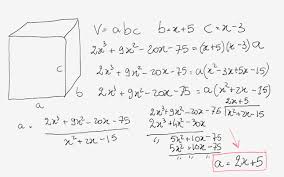 V = abc   b = x+5   c = x-3
2x³ + 9x² - 20x - 75 = (x+5)(x-3) a
2x³ + 9x² - 20x - 75 = a(x² - 3x + 5x - 15)
2x³ + 9x² - 20x - 75 = a(x² + 2x - 15)
c
b
a
a = (2x³ + 9x² - 20x - 75) / (x² + 2x - 15)
2x³ + 9x² - 20x - 75 | x² + 2x - 15
2x + 5
2x³ + 4x² - 30x
5x² + 10x - 75
5x² + 10x - 75
a = 2x+5